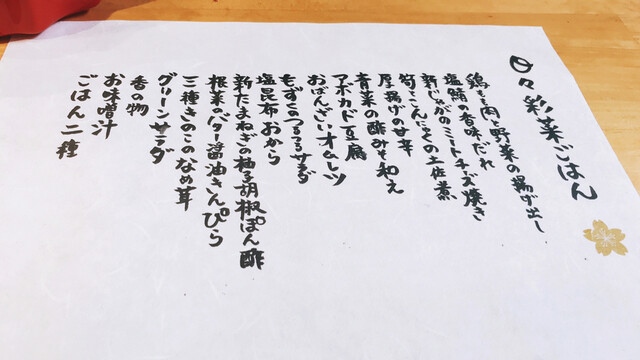 日々彩菜ごはん
鶏もも肉と野菜の揚げ出し
塩鯖の香味だれ
新じゃがのミートチーズ焼き
筍とこんにゃくの土佐煮
厚揚げの甘辛
青菜の酢みそ和え
アボカド豆腐
おばんざいオムレツ
もずくのつるつるサラダ
塩昆布おから
新たまねぎの柚子胡椒ぽん酢
根菜のバター醤油きんぴら
三種きのこのなめ茸
グリーンサラダ
香の物
お味噌汁
ごはん二種